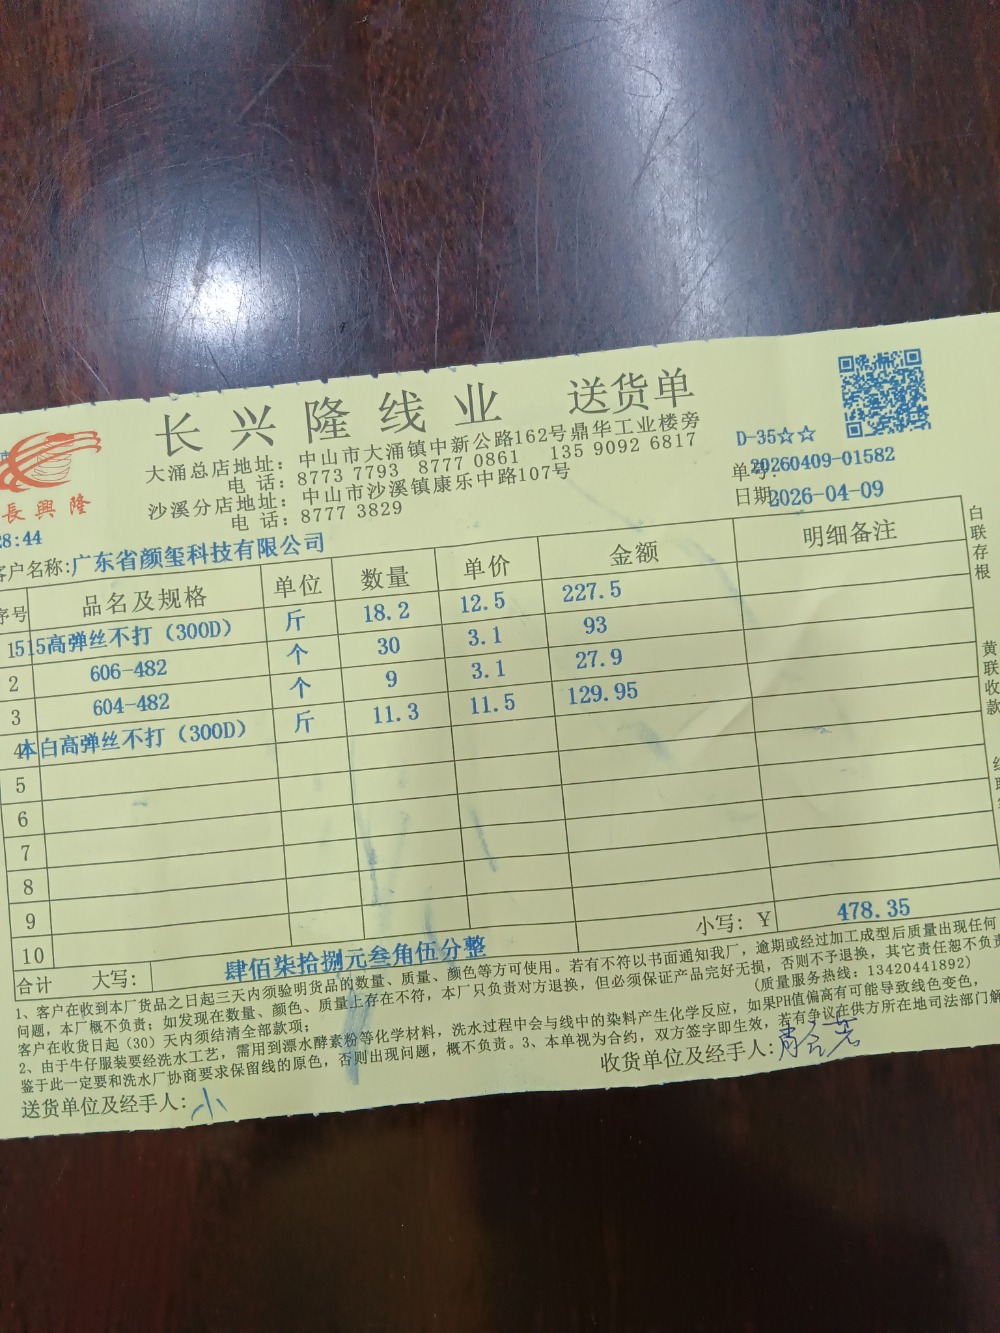 长兴隆线业 送货单
大涌总店地址：中山市大涌镇中新公路162号鼎华工业楼旁
电 话：8773 7793 8777 0861 135 9092 6817
沙溪分店地址：中山市沙溪镇康乐中路107号
电 话：8777 3829
長興隆
D-35☆☆
单号:20260409-01582
日期2026-04-09
28:44
客户名称:广东省颜玺科技有限公司
序号 品名及规格 单位 数量 单价 金额 明细备注
1 515高弹丝不打（300D） 斤 18.2 12.5 227.5
2 606-482 个 30 3.1 93
3 604-482 个 9 3.1 27.9
4 本白高弹丝不打（300D） 斤 11.3 11.5 129.95
5
6
7
8
9
10
合计 大写: 肆佰柒拾捌元叁角伍分整 小写: Y 478.35
1、客户在收到本厂货品之日起三天内须验明货品的数量、质量、颜色等方可使用。若有不符以书面通知我厂，逾期或经过加工成型后质量出现任何
问题，本厂概不负责；如发现在数量、颜色、质量上存在不符，本厂只负责对方退换，但必须保证产品完好无损，否则不予退换，其它责任恕不负责
客户在收货日起（30）天内须结清全部款项； (质量服务热线: 13420441892)
2、由于牛仔服装要经洗水工艺，需用到漂水酵素粉等化学材料，洗水过程中会与线中的染料产生化学反应，如果PH值偏高有可能导致线色变色，
鉴于此一定要和洗水厂协商要求保留线的原色，否则出现问题，概不负责。3、本单视为合约，双方签字即生效，若有争议在供方所在地司法部门解
送货单位及经手人: 小
收货单位及经手人:
白联存根
黄联收款